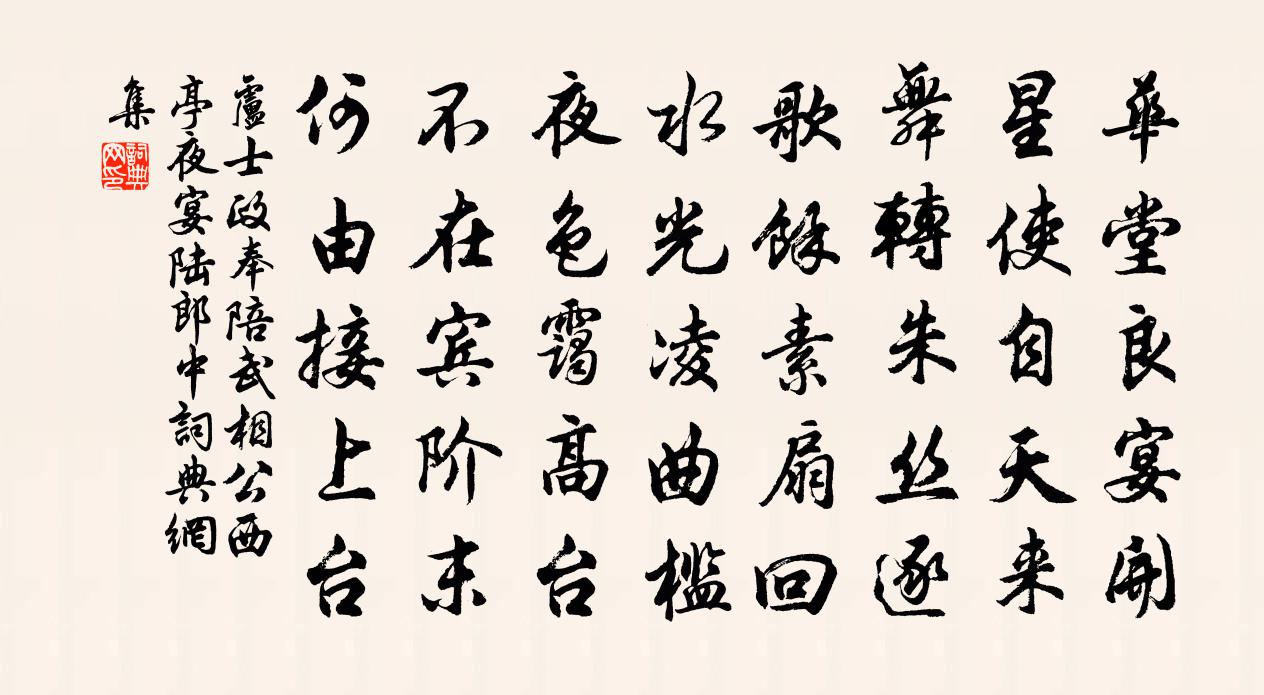 華堂良宴開
星使自天来
舞轉朱丝逐
歌餘素扇回
水光凌曲檻
夜色靄高台
不在宾阶末
何由接上台
盧士政奉陪武相公西
亭夜宴陆郎中詞典網
集
詞典網印